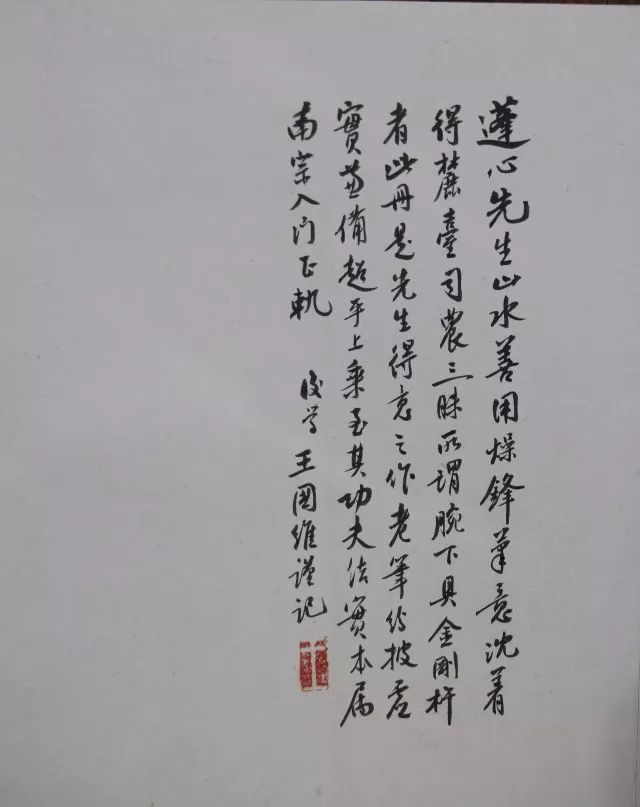 蓬心先生山水善用燥鋒筆意沈着
得麓臺司農三昧所謂腕下具金剛杵
者此冊是先生得意之作老筆紛披虛
實兼備超乎上乘至其功夫結實本屬
南宗入门正軌
後学王國維謹記